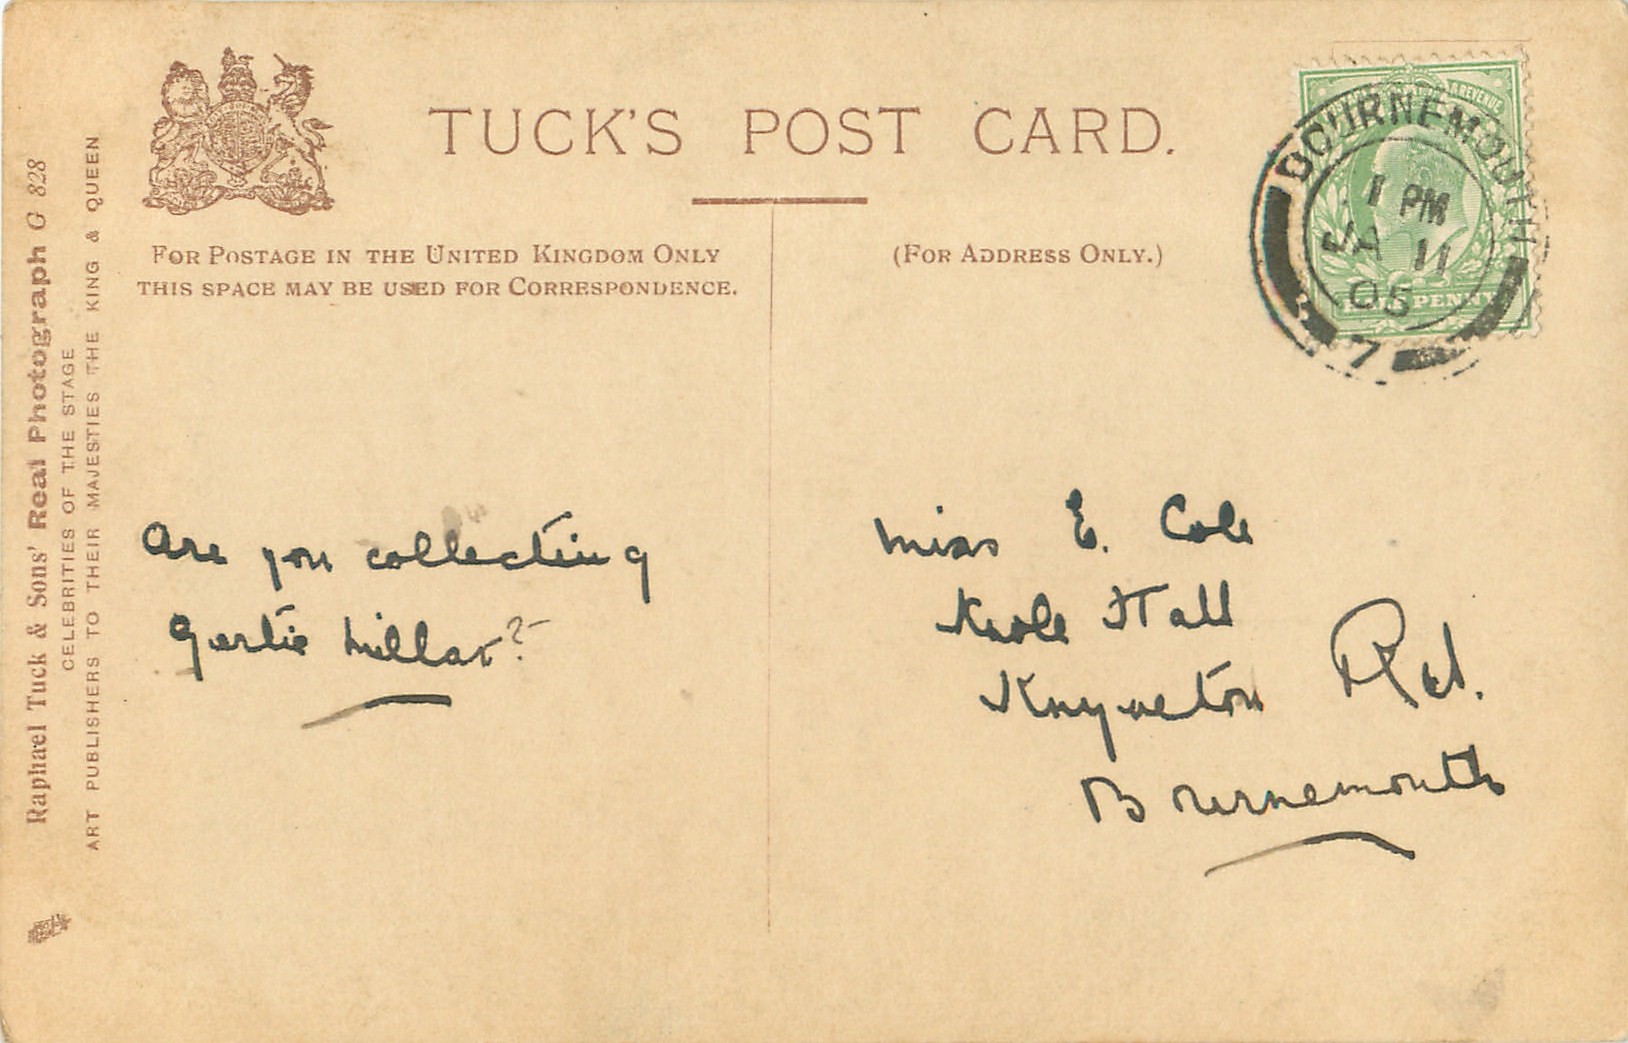 TUCK'S POST CARD.
FOR POSTAGE IN THE UNITED KINGDOM ONLY
THIS SPACE MAY BE USED FOR CORRESPONDENCE.
(FOR ADDRESS ONLY.)
BOURNEMOUTH
1 PM
JA 11
05
7
REVENUE
PENNY
Raphael Tuck & Sons' Real Photograph G 828
CELEBRITIES OF THE STAGE
ART PUBLISHERS TO THEIR MAJESTIES THE KING & QUEEN
Are you collecting
Gertie Millar?
Miss E. Cole
Knole Hall
Knyveton Rd.
Bournemouth